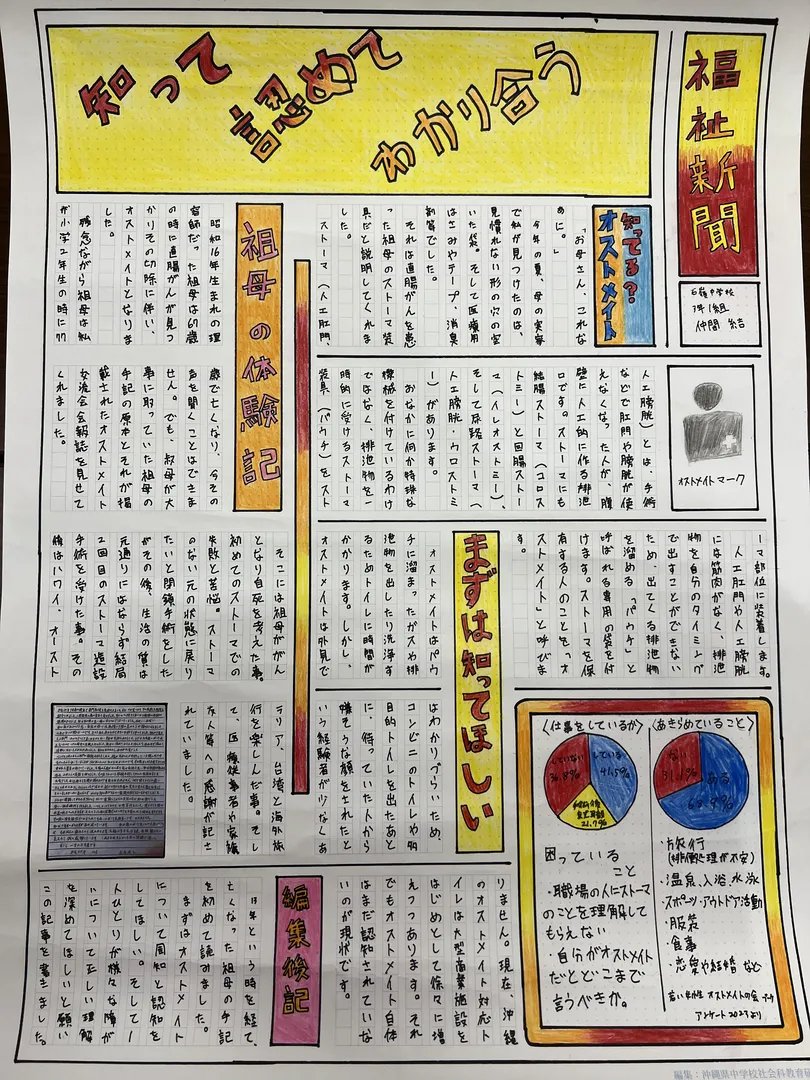 福祉新聞
知って
認めて
わかり合う
石嶺中学校
3年1組
仲間 結
知ってる?
オストメイト
「お母さん、これな
あに。」
今年の夏、母の実家
で私が見つけたのは、
見慣れない形の穴の空
いた袋。そして医療用
はさみやテープ、消臭
剤等でした。
それは直腸がんを患
った祖母のストーマ装
具だと説明してくれま
した。
ストーマ(人工肛門、
オストメイトマーク
人工膀胱)とは、手術
などで肛門や膀胱が使
えなくなった人が、腹
壁に人工的に作る排泄
口です。ストーマにも
結腸ストーマ(コロス
トミー)と回腸ストー
マ(イレオストミー)、
そして尿路ストーマ(
人工膀胱・ウロストミ
ー)があります。
おなかに何か特殊な
機械を付けているわけ
ではなく、排泄物を一
時的に受けるストーマ
装具(パウチ)をスト
ーマ部位に装着します。
人工肛門や人工膀胱
には筋肉がなく、排泄
物を自分のタイミング
で出すことができない
ため、出てくる排泄物
を溜める「パウチ」と
呼ばれる専用の袋を付
けます。ストーマを保
有する人のことを「オ
ストメイト」と呼びま
す。
まずは知ってほしい
オストメイトはパウ
チに溜まったガスや排
泄物を出したり洗浄す
るためトイレに時間が
かかります。しかし、
オストメイトは外見で
はわかりづらいため、
コンビニのトイレや多
目的トイレを出たあと
に、待っていた人から
嫌そうな顔をされたと
いう経験者が少なくあ
りません。現在、沖縄
のオストメイト対応ト
イレは大型商業施設を
はじめとして徐々に増
えつつあります。それ
でもオストメイト自体
はまだ認知されていな
いのが現状です。
〈仕事をしているか〉
している
41.5%
していない
36.8%
21.7%
〈あきらめていること〉
ある
68.9%
ない
31.1%
困っている
こと
・職場の人にストーマ
のことを理解して
もらえない
・自分がオストメイト
だとどこまで
言うべきか。
・旅行
(排便処理が不安)
・温泉、入浴、水泳
・スポーツ・アウトドア活動
・服装
・食事
・恋愛や結婚 など
若い女性オストメイトの会
アンケート2023より
祖母の体験記
昭和16年生まれの理
容師だった祖母は67歳
の時に直腸がんが見つ
かりその切除に伴い、
オストメイトとなりま
した。
残念ながら祖母は私
が小学2年生の時に77
歳で亡くなり、今その
声を聞くことはできま
せん。でも、叔母が大
事に取っていた祖母の
手記の原本と、それが掲
載されたオストメイト
交流会会報誌を見せて
くれました。
そこには祖母ががん
となり自死を考えた事。
初めてのストーマでの
失敗と苦悩。ストーマ
のない元の状態に戻り
たいと閉鎖手術をした
がその後、生活の質は
元通りにはならず結局
2回目のストーマ造設
手術を受けた事。その
後はハワイ、オースト
ラリア、台湾と海外旅
行を楽しんだ事。そし
て、医療従事者や家族
友人等への感謝が記さ
れていました。
編集後記
年という時を経て、
亡くなった祖母の手記
を初めて読みました。
まずはオストメイト
について周知と認知を
してほしい。そして一
人ひとりが様々な障が
いについて正しい理解
を深めてほしいと願い
この記事を書きました。
編集：沖縄県中学校社会科教育研